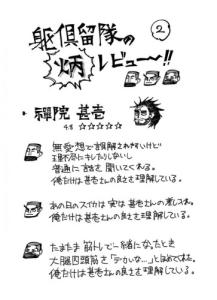 躯倶留隊の
炳レビュー〜!!
②
・禪院 甚壱
4.8 ☆☆☆☆☆
無愛想で誤解されやすいけど
理不尽にキレたりしないし
普通に話を聞いてくれる。
俺だけは甚壱さんの良さを理解している。
あの日のスイカは実は甚壱さんの差し入れ。
俺だけは甚壱さんの良さを理解している。
たまたま筋トレで一緒になったとき
大腿四頭筋を「デカいな…」とほめてくれた。
俺だけは甚壱さんの良さを理解している。